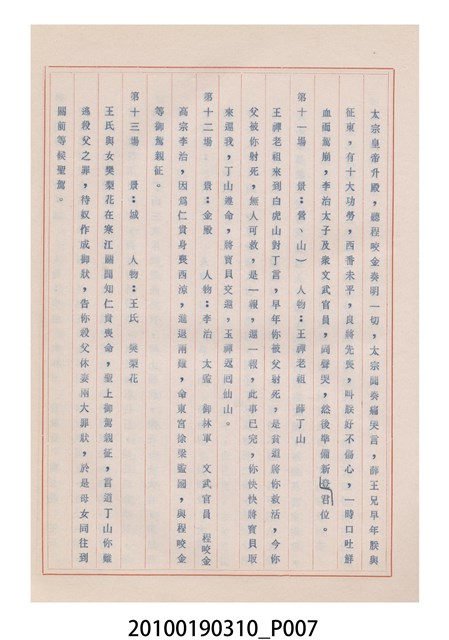 太宗皇帝升殿，聽程咬金奏明一切，太宗聞奏痛哭言，薛王兄早年朕與
征東，有十大功勞，西番未平，良將先喪，叫朕好不傷心，一時口吐鮮
血而駕崩，李治太子及衆文武官員，同聲哭，然後準備新登君位。
第十一場　景：營、山）　人物：王禪老祖　薛丁山
王禪老祖來到白虎山對丁言，早年你被父射死，是貧道將你救活，今你
父被你射死，無人可救，是一報，還一報，此事已完，你快快將寶貝取
來還我，丁山遵命，將寶貝交還，玉禪返回仙山。
第十二場　景：金殿　人物：李治　太監　御林軍　文武官員　程咬金
高宗李治，因爲仁貴身喪西漳，進退兩難，命東宮徐梁監國，與程咬金
等御駕親征。
第十三場　景：城　人物：王氏　樊梨花
王氏與女樊梨花在寒江關聞知仁貴喪命，聖上御駕親征，言道丁山你難
逃殺父之罪，待奴作成御狀，告你殺父休妻兩大罪狀，於是母女同往到
關前等候聖駕。
20100190310_P007